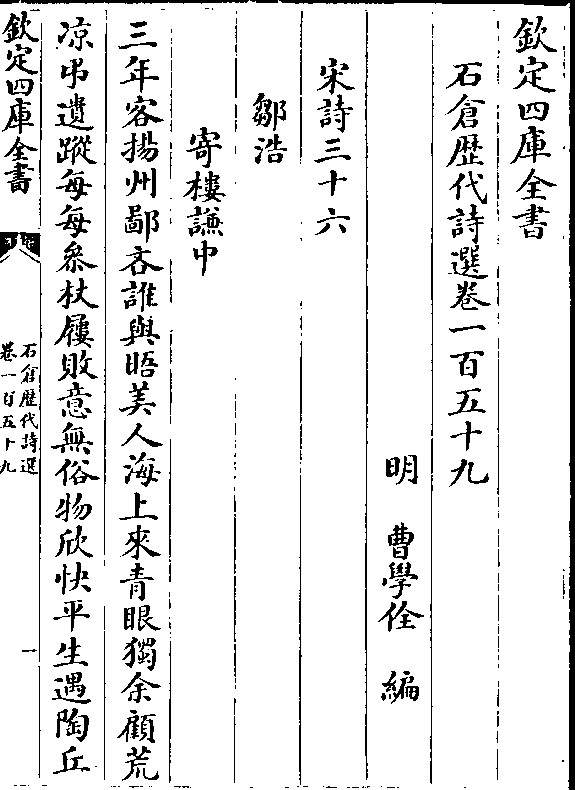 欽定四庫全書
石倉歴代詩選卷一百五十九
明 曹學佺 編
宋詩三十六
鄒浩
寄樓謙中
三年客揚州鄙吝誰與晤美人海上來青眼獨余顧荒
凉弔遺蹤每每叅杖屨敗意無俗物欣快平生遇陶丘
欽定四庫全書
石倉歴代詩選
卷一百五十九
一